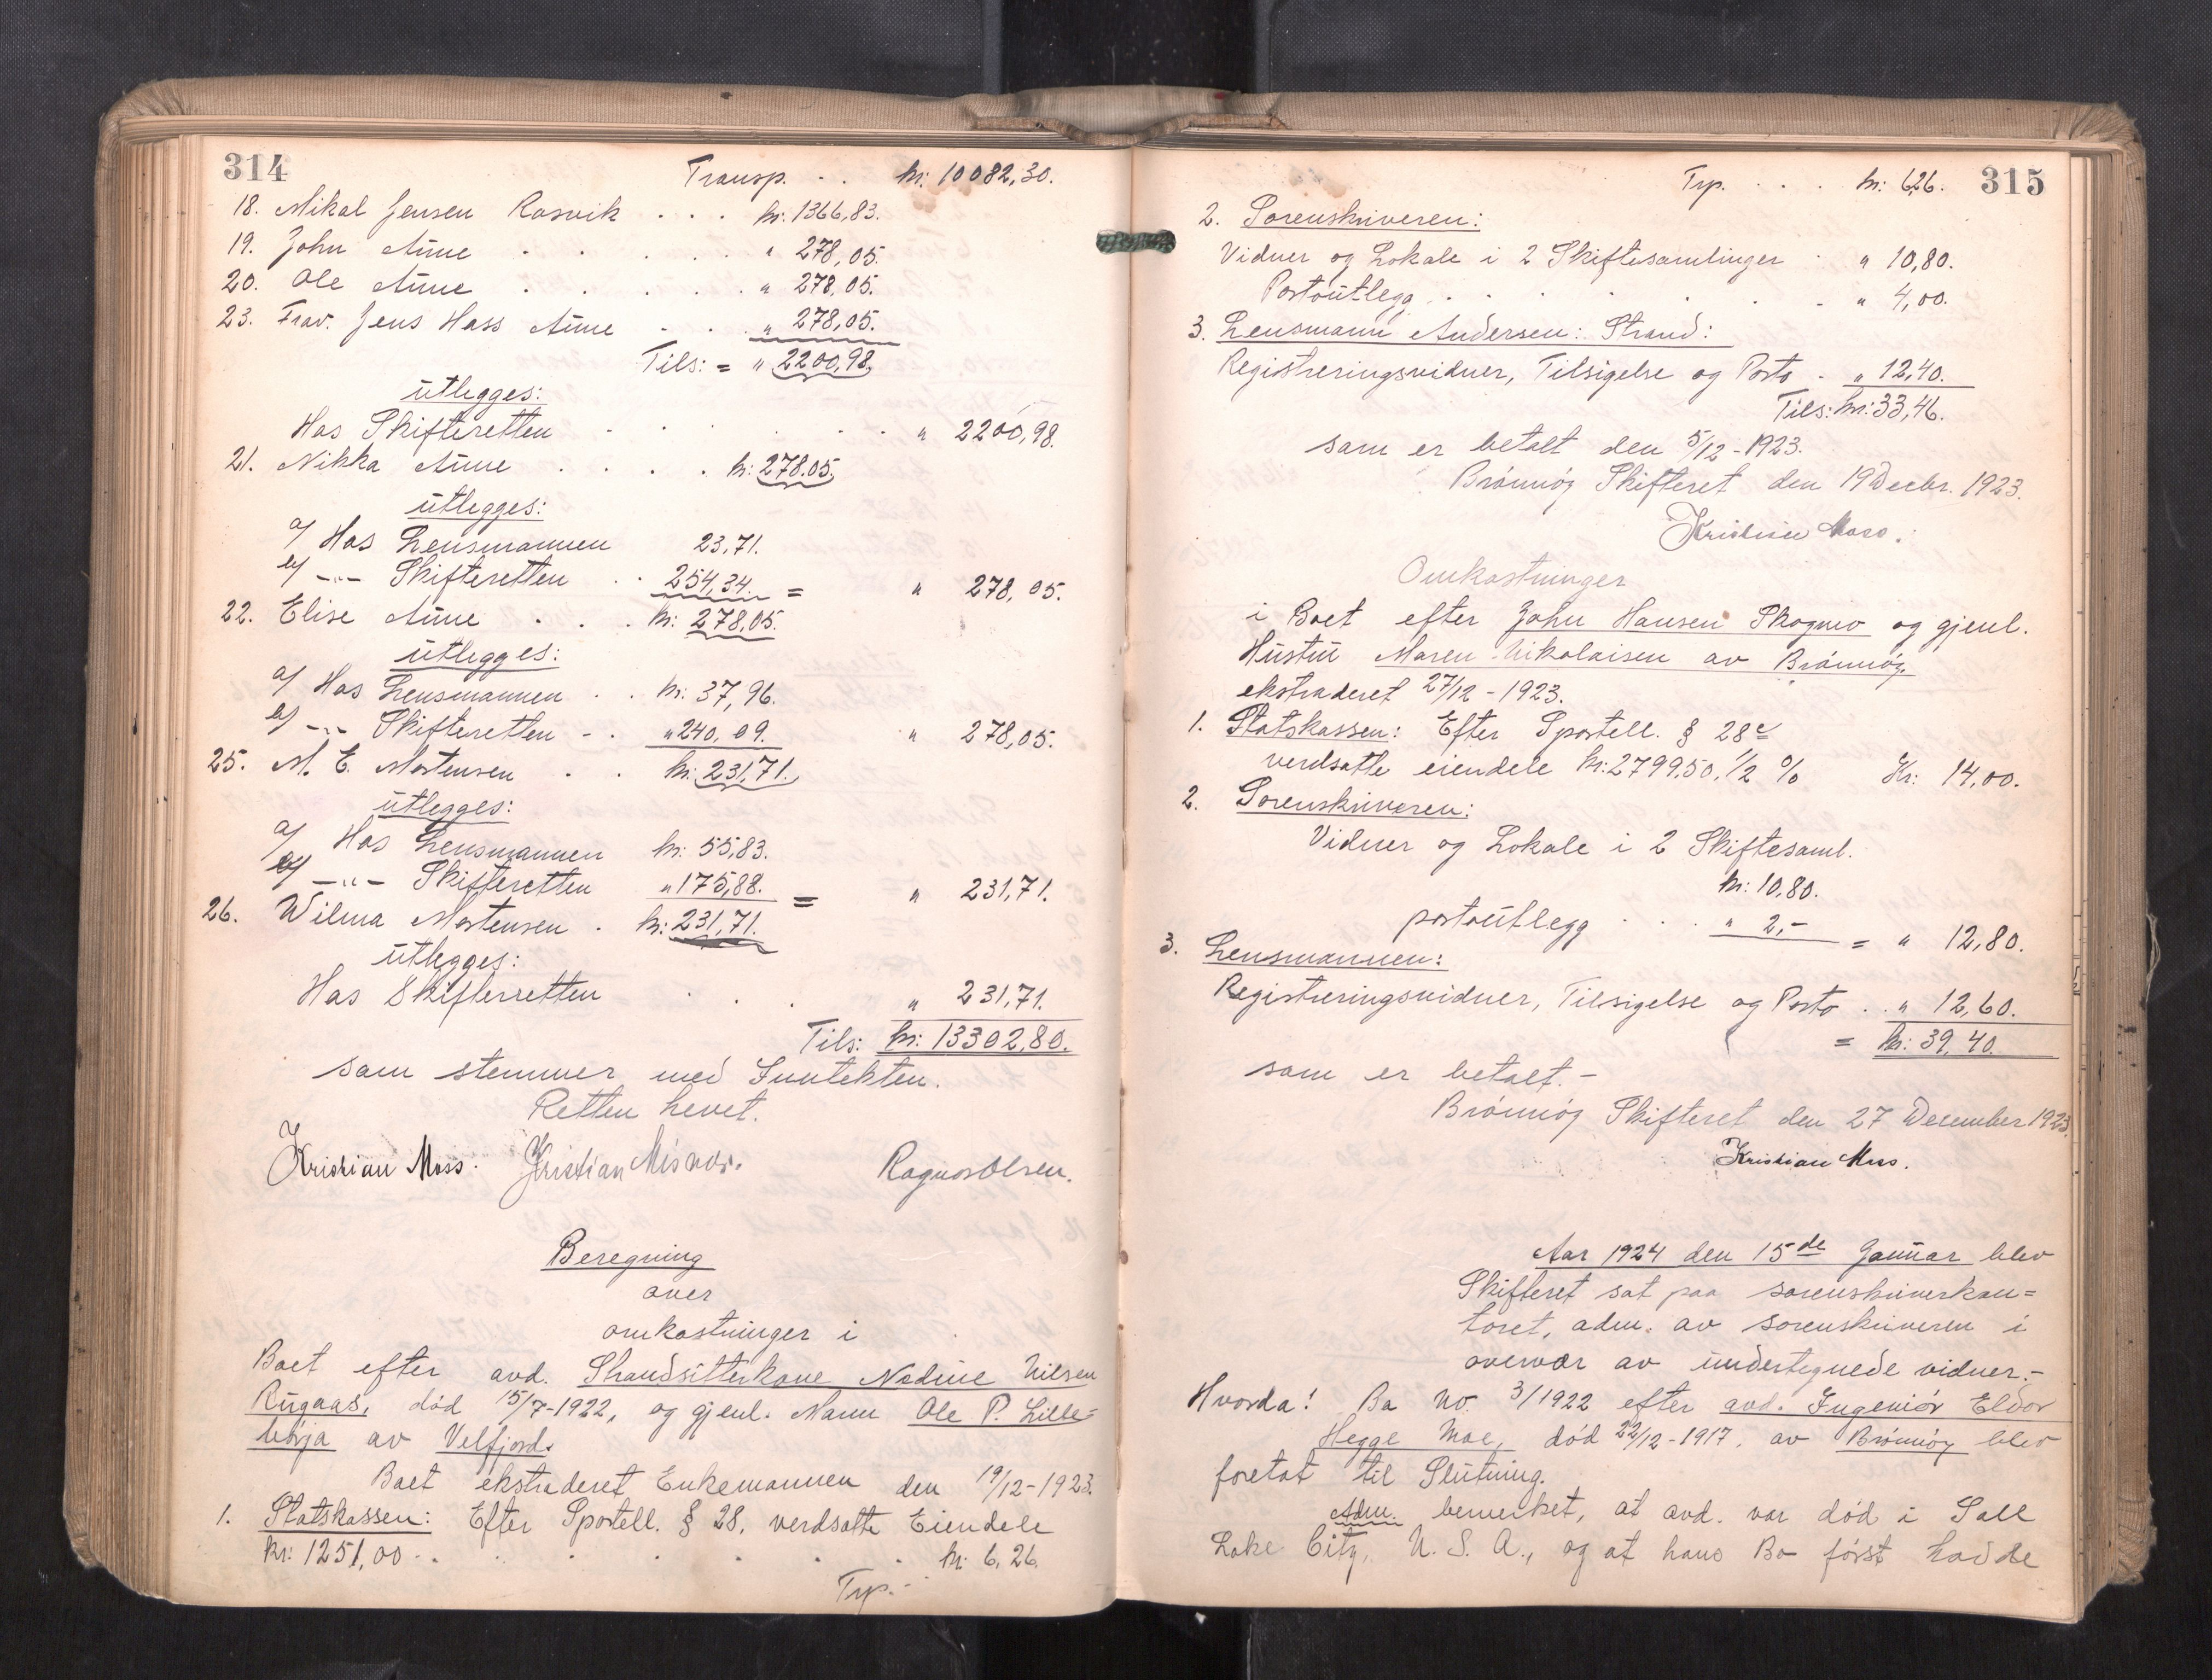 314
Transp. . . kr: 10082,30.
18. Mikal Jensen Rosvik . . . kr: 1366,83.
19. John Aune . . . . . " 278,05.
20. Ole Aune . . . . . " 278,05.
23. Frav. Jens Hass Aune - . . " 278,05.
Tils: = " 2200,98.
utlegges:
Hos Skifteretten . . . . . . " 2200,98.
21. Nikka Aune . . . . kr: 278.05.
utlegges:
a/ Hos Lensmannen 23,71.
b/ -"- Skifteretten . . 254,34. = " 278,05.
22. Elise Aune . . . kr: 278,05.
utlegges:
a/ Hos Lensmannen . . kr: 37,96.
b/ -"- Skifteretten - . " 240,09. " 278,05.
25. M. E. Mortensen . . kr: 231,71.
utlegges:
a/ Hos Lensmannen kr: 55,83.
b/ -"- Skifteretten " 175,88. = " 231,71.
26. Wilma Mortensen . kr: 231,71.
utlegges:
Hos Skifterretten . . . " 231,71.
Tils: kr: 13302,80.
som stemmer med Inntekten.
Retten hevet.
Kristian Moss. Kristian Ragnar Olsen.
Beregning
over
omkostninger i
Boet efter avd. Strandsitterkone Nadine Nilsen
Rugaas, død 15/7-1922, og gjenl. Mann Ole P. Lille=
børja av Velfjord.
Boet ekstraderet Enkemannen den 19/12-1923.
1. Statskassen: Efter Sportell. § 28, verdsatte Eiendele
kr: 1251,00 - . . . . . . kr: 6,26.
Trp. -
Trp. . . . kr: 6,26. 315
2. Sorenskriveren:
Vidner og Lokale i 2 Skiftesamlinger . " 10,80.
Portoutlegg . . . . . . . " 4,00.
3. Lensmann Andersen: Strand:
Registreringsvidner, Tilsigelse og Porto . " 12,40.
Tils: kr: 33,46.
som er betalt den 5/12-1923.
Brønnøy Skifteret den 19 Decbr. 1923.
Kristian Moss.
Omkostninger
i Boet efter John Hansen Skogmo og gjenl.
Hustru Maren Nikolaisen av Brønnøy.
ekstraderet 27/12-1923.
1. Statskassen: Efter Sportell. § 28c
verdsatte eiendele kr: 2799,50. 1/2 % Kr: 14,00.
2. Sorenskriveren:
Vidner og Lokale i 2 Skiftesaml.
kr: 10,80.
portoutlegg . . . " 2,- = " 12,80.
3. Lensmannen:
Registreringsvidner, Tilsigelse og Porto . . " 12,60.
= kr: 39,40.
som er betalt. -
Brønnøy Skifteret den 27 December 1923.
Kristian Moss.
Aar 1924 den 15de Januar blev
Skifteret sat paa sorenskriverkon=
toret, adm. av sorenskriveren i
overvær av undertegnede vidner. -
Hvorda! Bo No. 3/1922 efter avd. Ingeniør Eldor
Hegge Moe, død 22/12-1917, av Brønnøy blev
foretat til Slutning.
Adm. bemerket, at avd. var død i Salt
Lake City, U. S. A., og at hans Bo først hadde